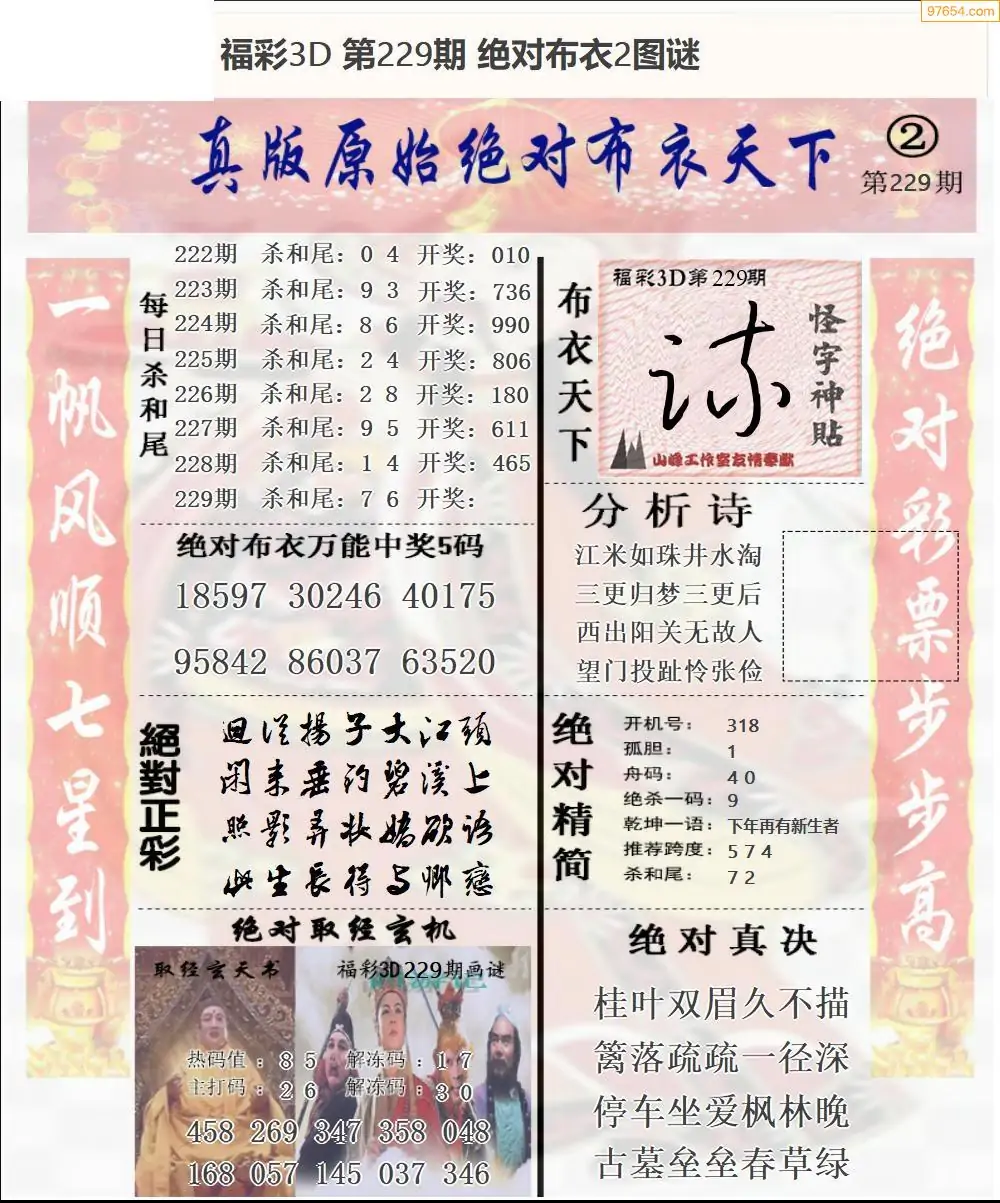 97654.com
福彩3D 第229期 绝对布衣2图谜
真版原始绝对布衣天下
②
第229期
一帆风顺七星到
每日杀和尾
222期 杀和尾：0 4 开奖：010
223期 杀和尾：9 3 开奖：736
224期 杀和尾：8 6 开奖：990
225期 杀和尾：2 4 开奖：806
226期 杀和尾：2 8 开奖：180
227期 杀和尾：9 5 开奖：611
228期 杀和尾：1 4 开奖：465
229期 杀和尾：7 6 开奖：
绝对布衣万能中奖5码
18597 30246 40175
95842 86037 63520
絕對正彩
迴從揚子大江頭
闲来垂钓碧溪上
照影弄妝嬌欲语
此生長得与卿戀
绝对取经玄机
取经玄天书
福彩3D229期画谜
热码值：8 5 解冻码：1 7
主打码：2 6 解冻码：3 0
458 269 347 358 048
168 057 145 037 346
布衣天下
福彩3D第229期
怪字神贴
山峰工作室友情奉献
分析诗
江米如珠井水淘
三更归梦三更后
西出阳关无故人
望门投趾怜张俭
绝对精简
开机号：318
孤胆：1
舟码：4 0
绝杀一码：9
乾坤一语：下年再有新生者
推荐跨度：5 7 4
杀和尾：7 2
绝对真决
桂叶双眉久不描
篱落疏疏一径深
停车坐爱枫林晚
古墓垒垒春草绿
绝对彩票步步高